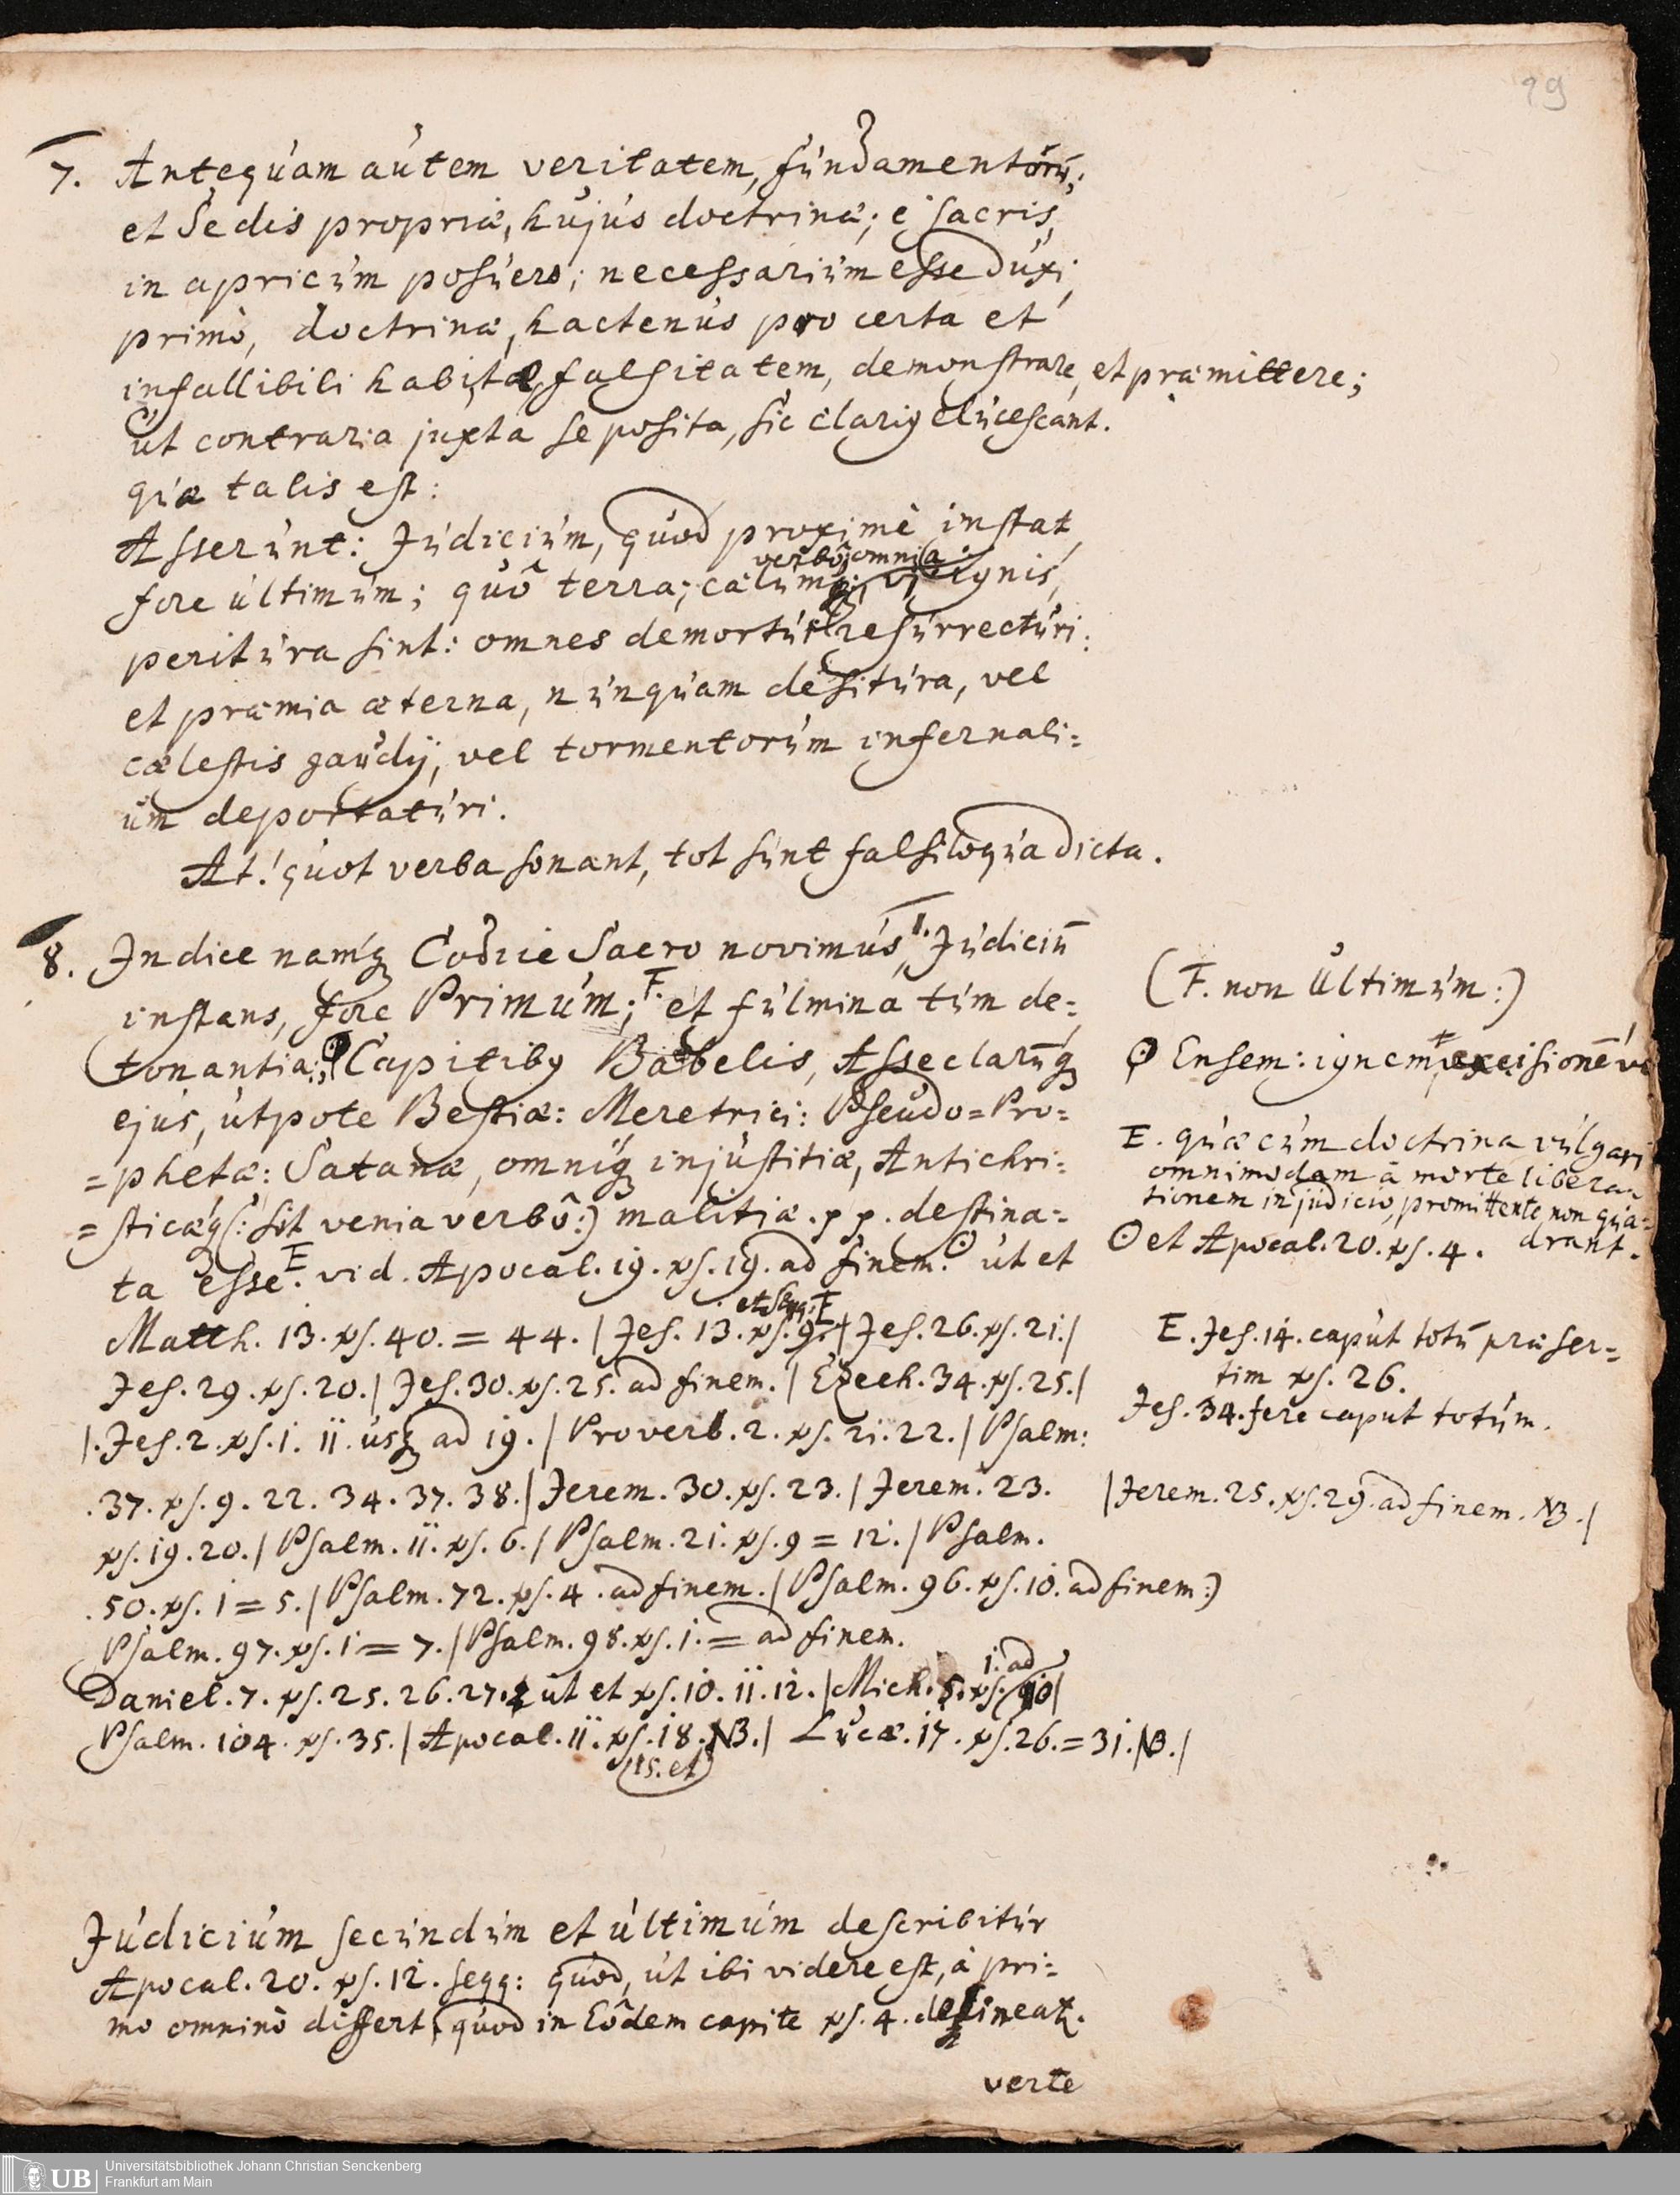 99
7. Antequam autem veritatem, fundamentorū;
et Sedis propriæ, hujus doctrinæ; è sacris,
in apricum posuero; necessarium esse duxi,
primò, doctrinæ, hactenus pro certa et
infallibili habitæ, falsitatem, demonstrare, et præmittere;
ut contraria juxta se posita, sic clariꝰ elucescant.
quæ talis est:
Asserunt: Judicium, quod proximè instat,
verbô; omnia
fore ultimum; quô terra; cælumq;, vi ignis,
peritura sint: omnes demortui resurrecturi:
et præmia æterna, nunquam desitura, vel
cælestis gaudÿ, vel tormentorum infernali=
um deportaturi.
At! quot verba sonant, tot sunt falsiloqua dicta.
8. Indice namq; Codice Sacro novimus, 1. Judiciū
instans, fore Primum; F. et fulmina tum de=
tonantia; Capitibꝰ Babelis, Asseclarūq;
ejus, utpote Bestiæ: Meretrici: Pseudo=Pro=
=phetæ: Satanæ, omniq; injustitiæ, Antichri=
=sticæq; (: sit venia verbô:) malitiæ. p p. destina=
ta esse. E vid. Apocal. 19. vs. 19. ad finem. ⊙ ut et
et seqq: E
Matth. 13. vs. 40. = 44. / Jes. 13. vs. 9. / Jes. 26. vs. 21. /
Jes. 29. vs. 20. / Jes. 30. vs. 25. ad finem. / Ezech. 34. vs. 25. /
/. Jes. 2. vs. 1. 11. usq; ad 19. / Proverb. 2. vs. 21. 22. / Psalm:
. 37. vs. 9. 22. 34. 37. 38. / Jerem. 30. vs. 23. / Jerem. 23.
vs. 19. 20. / Psalm. 11. vs. 6. / Psalm. 21. vs. 9 = 12. / Psalm.
. 50. vs. 1 = 5. / Psalm. 72. vs. 4. ad finem. / Psalm. 96. vs. 10. ad finem :)
Psalm. 97. vs. 1 = 7. / Psalm. 98. vs. 1. = ad finem.
1. ad
Daniel. 7. vs. 25. 26. 27. ut et vs. 10. 11. 12. / Mich. 5. vs. 10 /
Psalm. 104. vs. 35. / Apocal. 11. vs. 18. NB. / Lucæ. 17. vs. 26. = 31. NB. /
15. et
Judicium secundum et ultimum describitur
Apocal. 20. vs. 12. seqq: quod, ut ibi videre est, à pri=
mo omninò differt, quod in Eôdem capite vs. 4. delineat.
verte
(F. non Ultimum :)
Ensem: ignem, excisionē
E. quæ cum doctrina vulgari
omnimodam à morte libera=
tionem in judicio, promittente, non qua=
drant.
⊙ et Apocal. 20. vs. 4.
E. Jes. 14. caput totū præser=
tim vs. 26.
Jes. 34. fere caput totum.
/ Jerem. 25. vs. 29. ad finem. NB. /
UB
Universitätsbibliothek Johann Christian Senckenberg
Frankfurt am Main